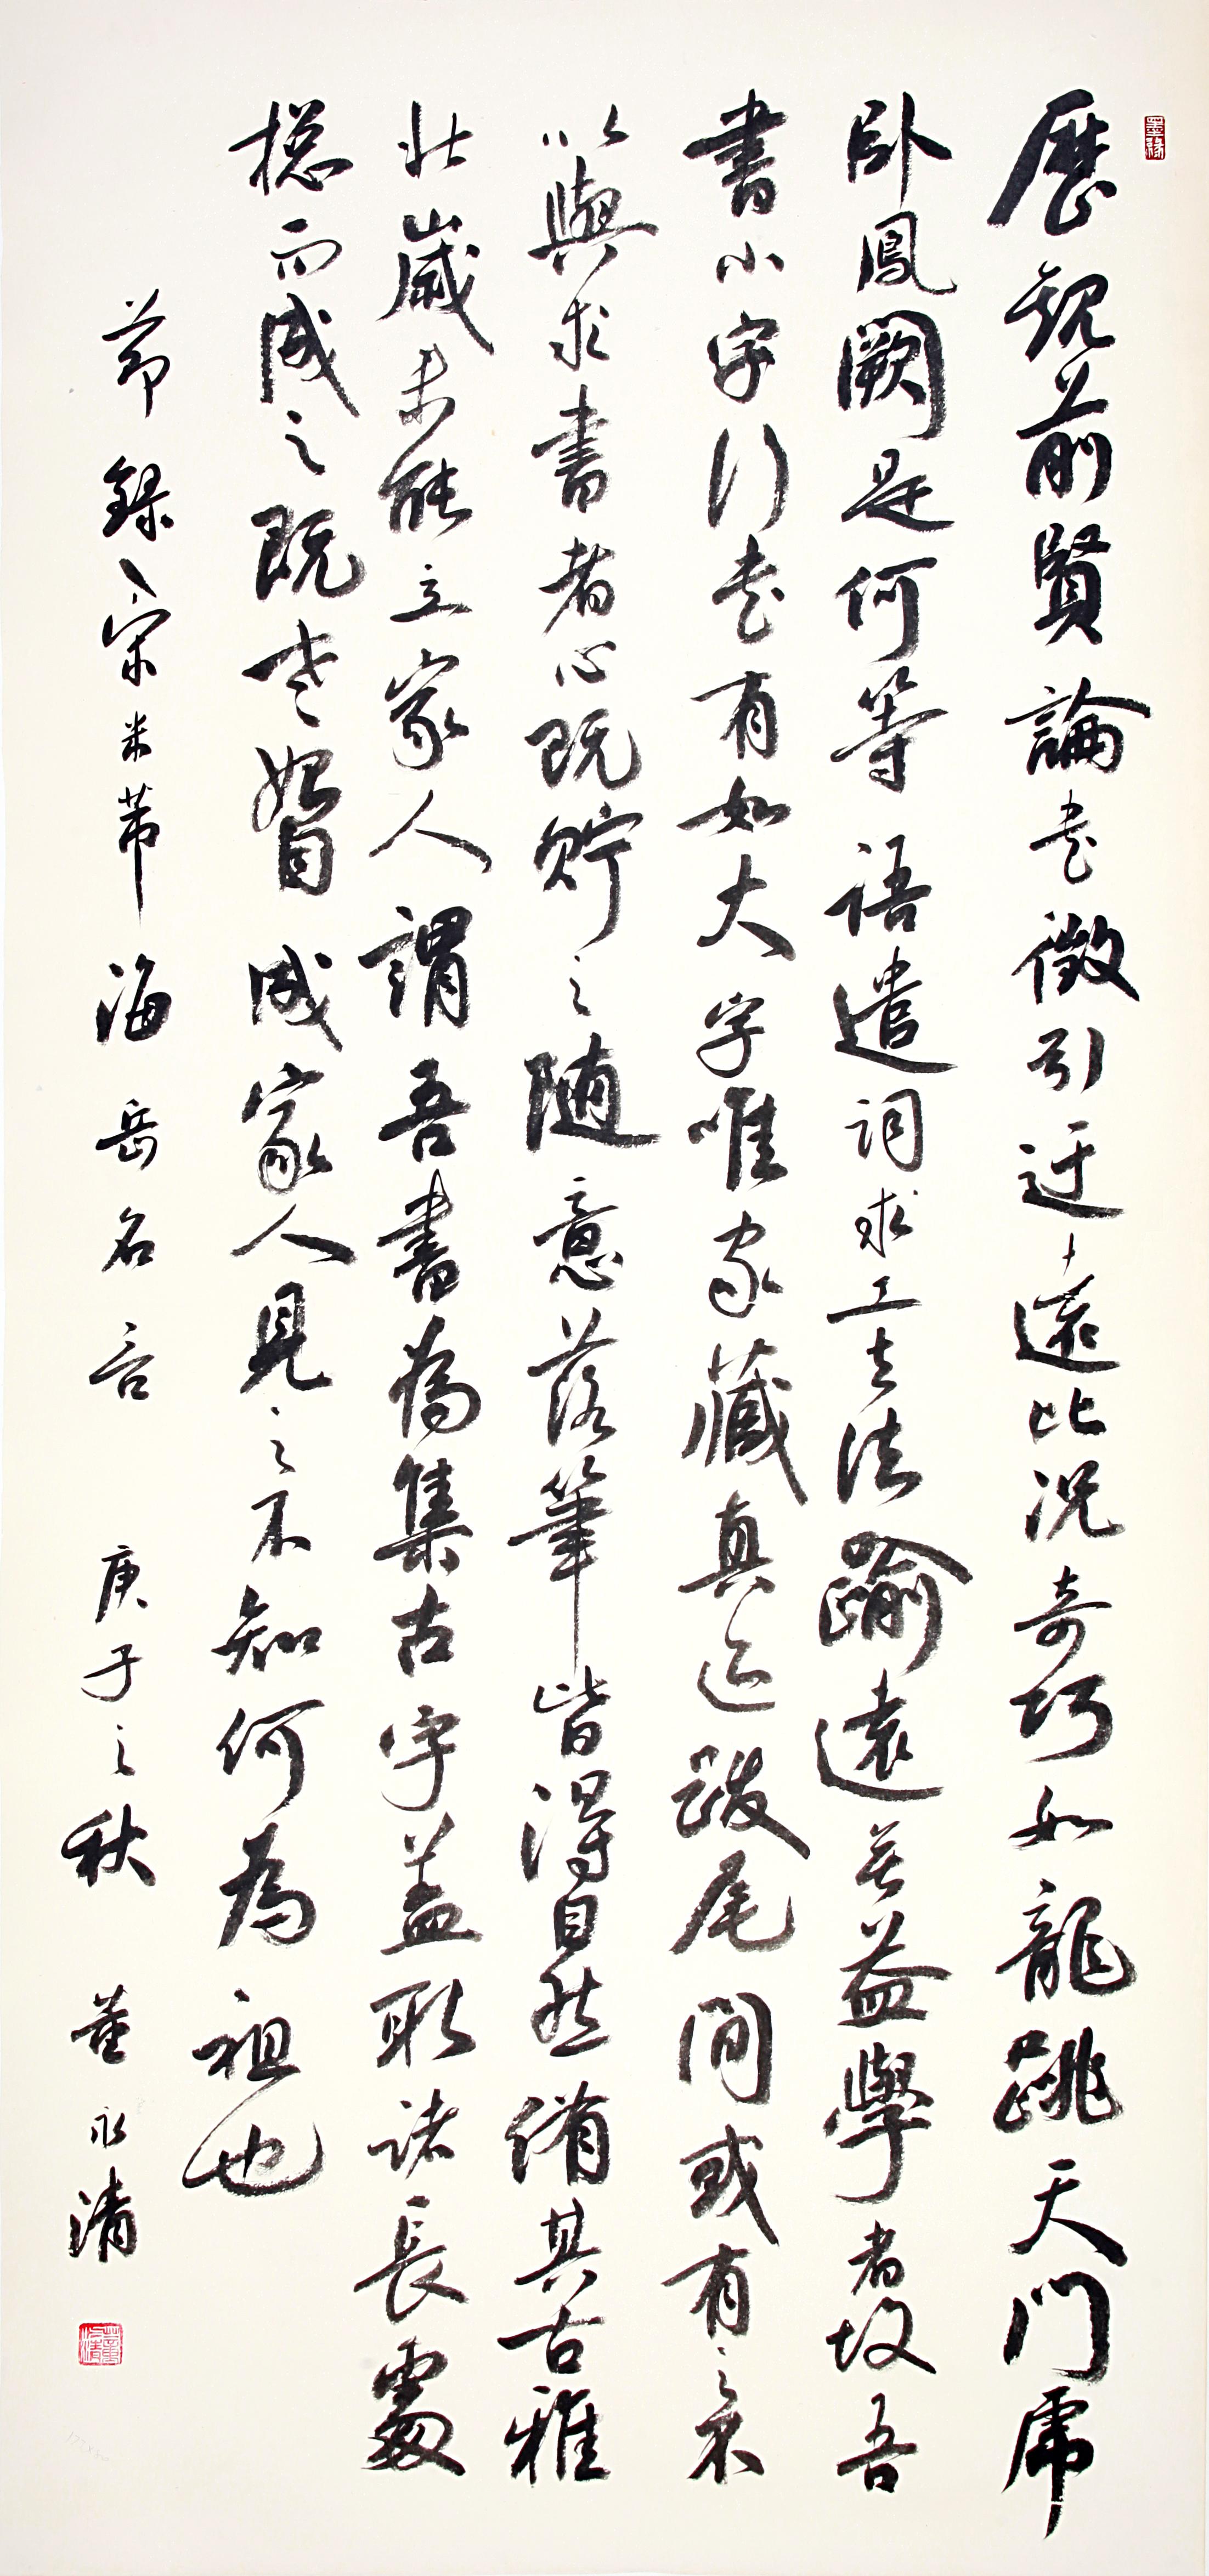 墨緣
歷觀前賢論書徵引迂遠比况奇巧如龍跳天門虎
卧鳳闕是何等語遣詞求工去法踰遠無益學者故吾
書小字行書有如大字唯家藏真迹跋尾間或有之不
以與求書者心既貯之随意落筆皆得自然備其古雅
壯歲未能立家人謂吾書為集古字盖取諸長處
總而成之既老始自成家人見之不知何為祖也
節錄宋米芾海岳名言 庚子之秋 董永清